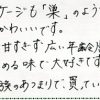 ケージも「巣」のよう
かわいいです。
甘すぎず広い年齢層
める味で大好きです
族のあつまりで、買ってい